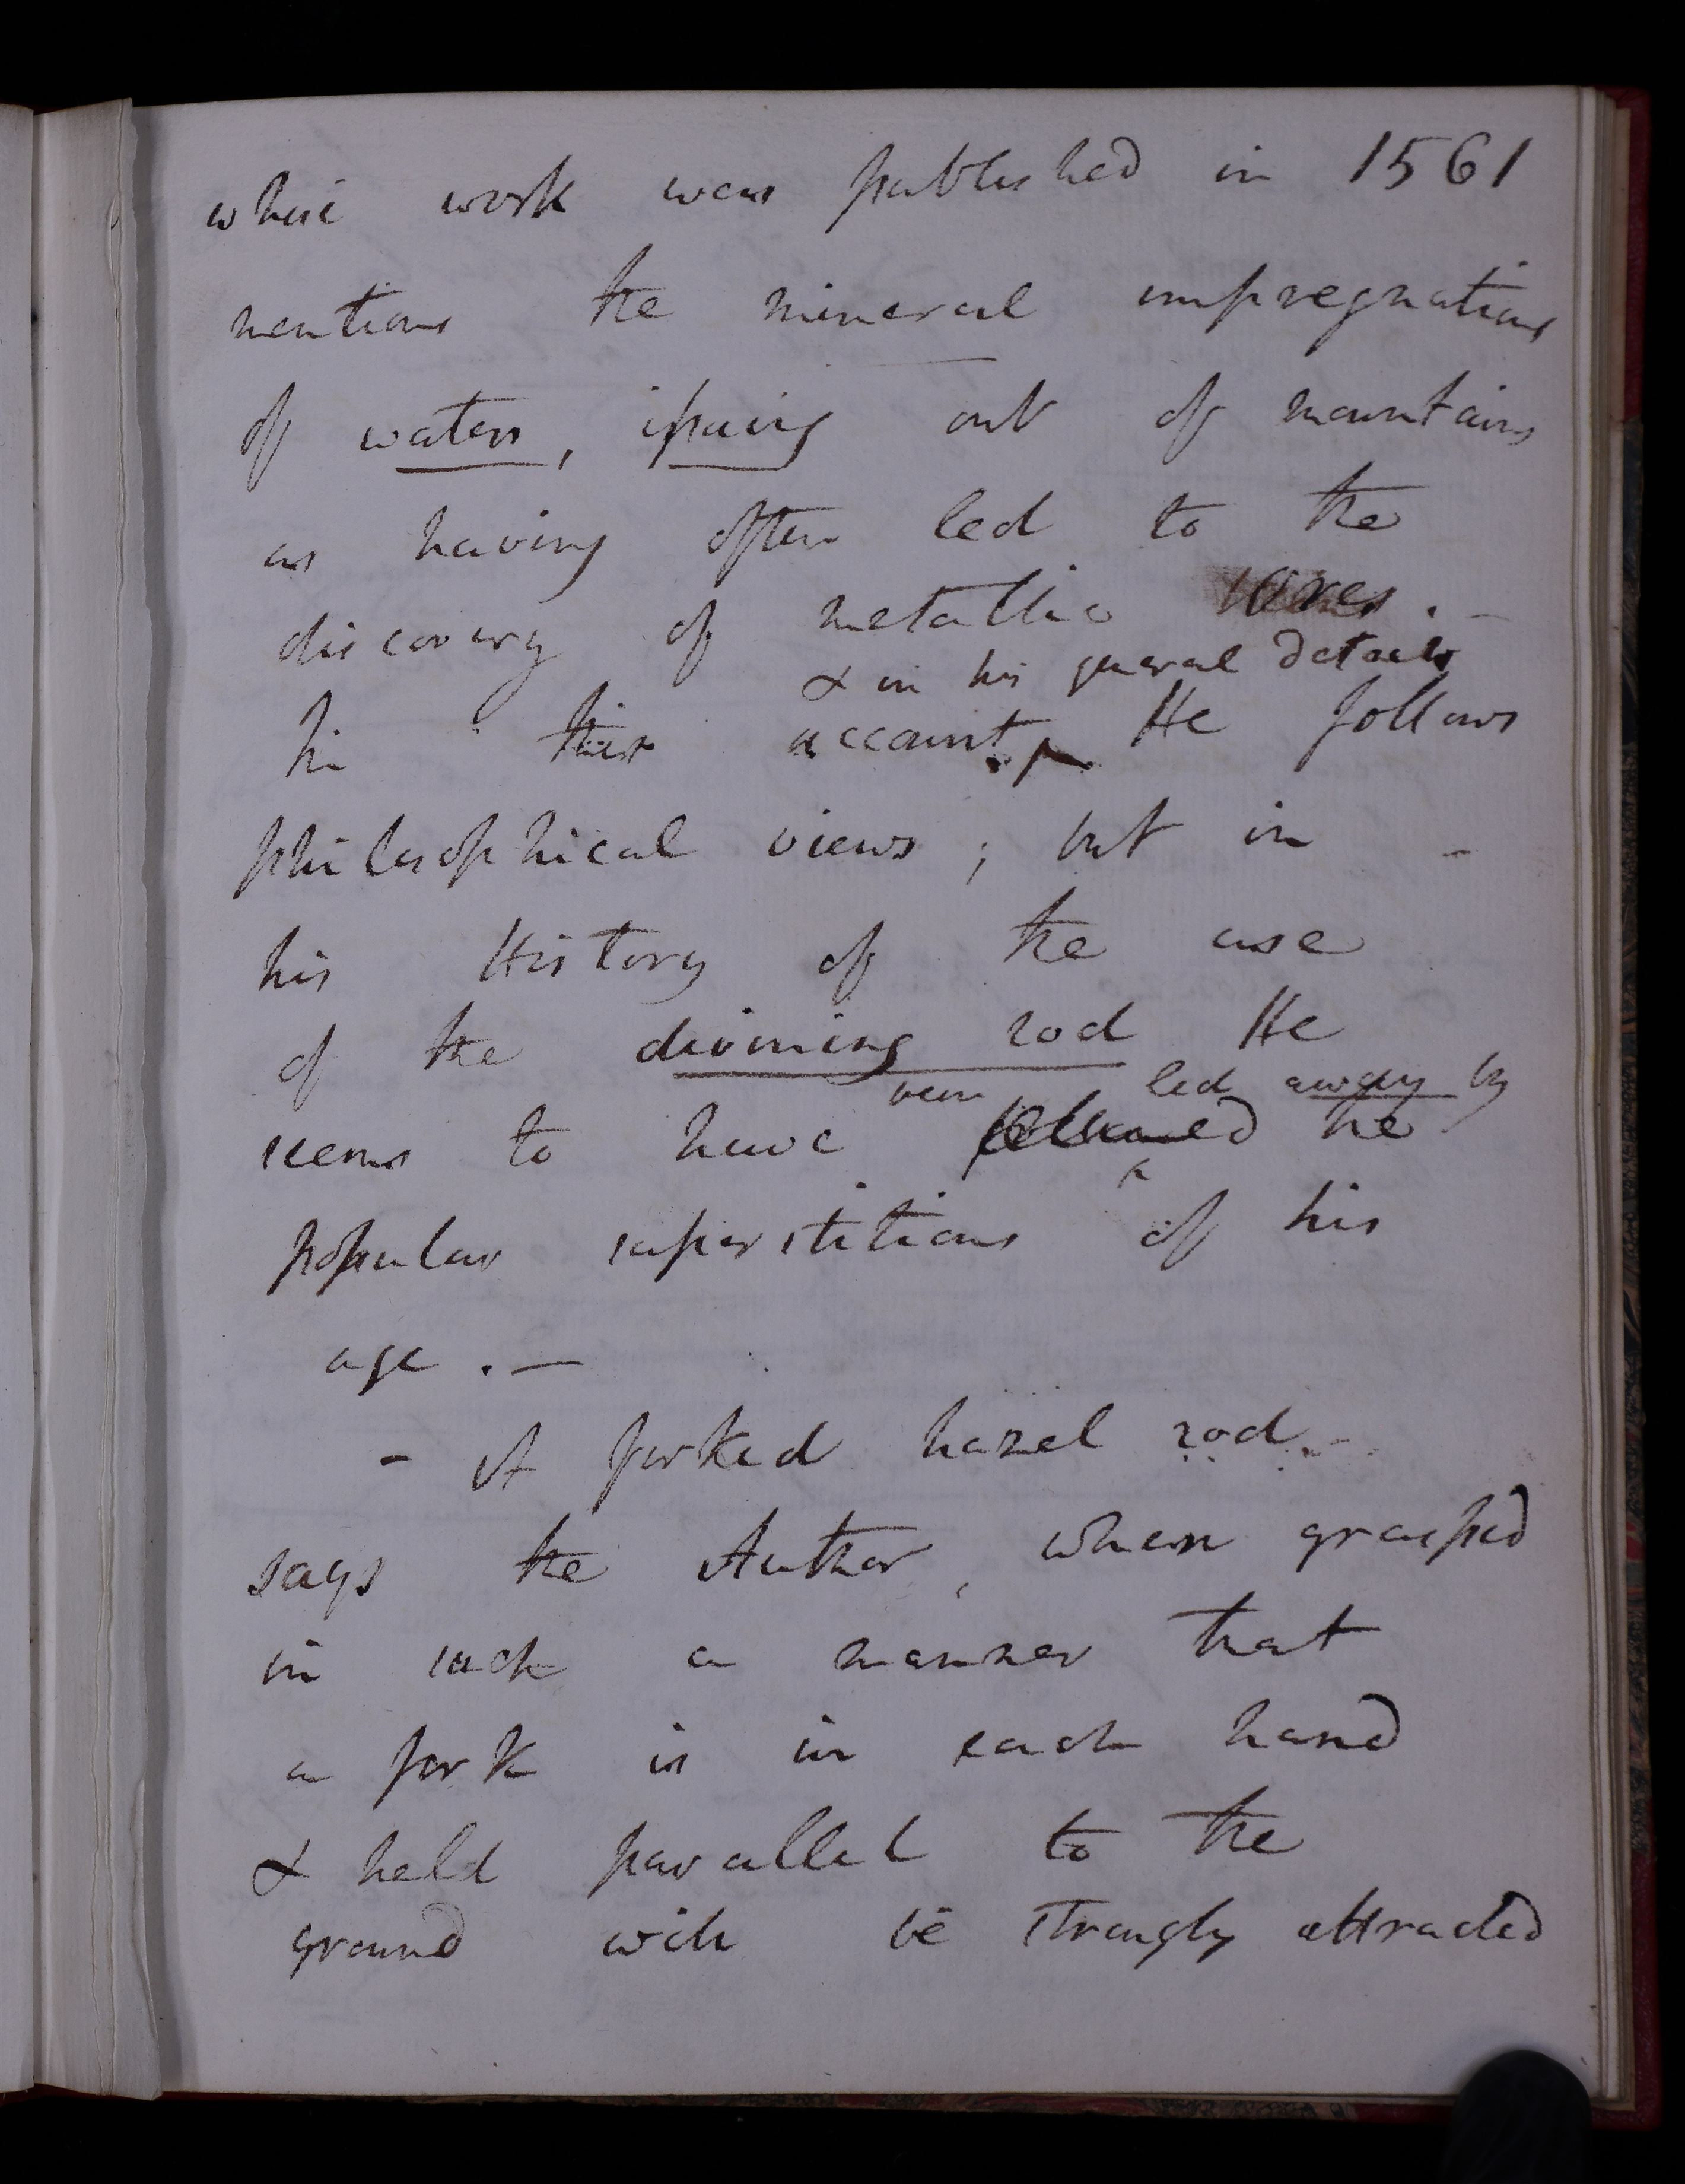 whose work was published in 1561
mentions the mineral impregnations
of waters, issuing out of mountains
as having often led to the
discovery of metallic Ores. –
& in his general details
In this account He follows
philosophical views; but in –
his History of the use
of the divining rod He
been led away by
seems to have followed the
popular superstitions of his
age. –
– A forked hazel rod. –
says the Author, when grasped
in such a manner that
a fork is in each hand
& held parallel to the
ground will be strongly attracted